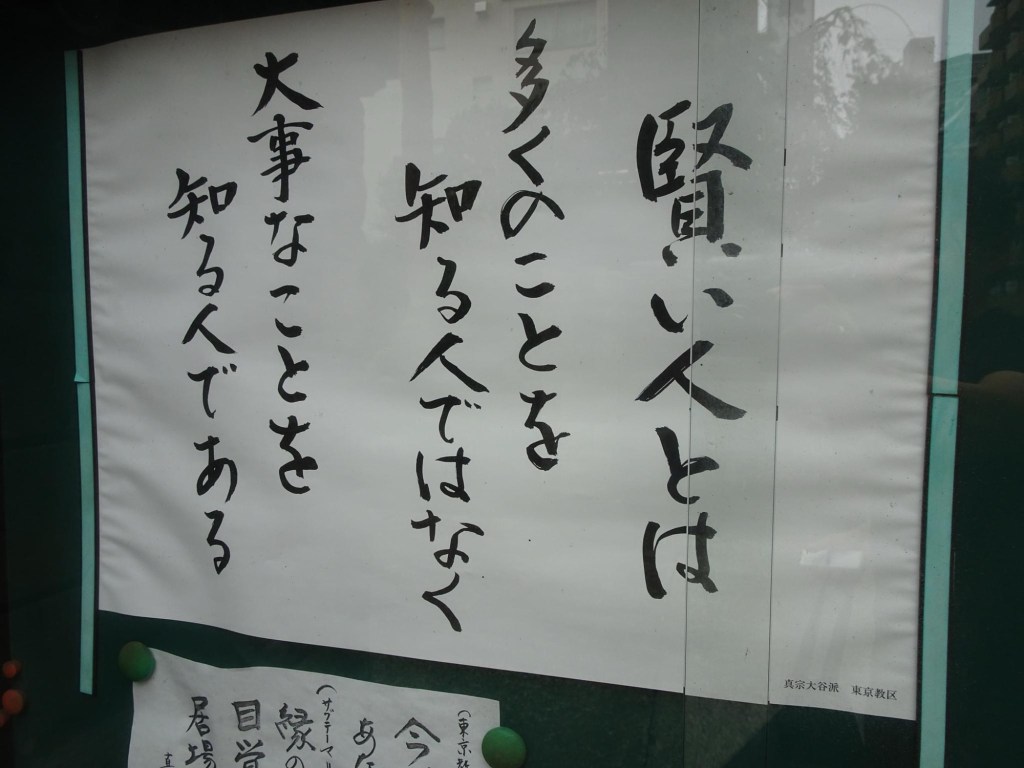 賢い人とは
多くのことを
知る人ではなく
大事なことを
知る人である
真宗大谷派 東京教区
(東京教
今
あな
(サブテーマ
縁の
目覚
居場